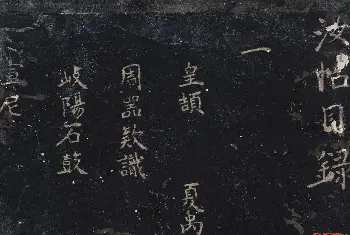 汝帖目録
一
皇頡 夏禹
周器欵識
岐陽石鼓